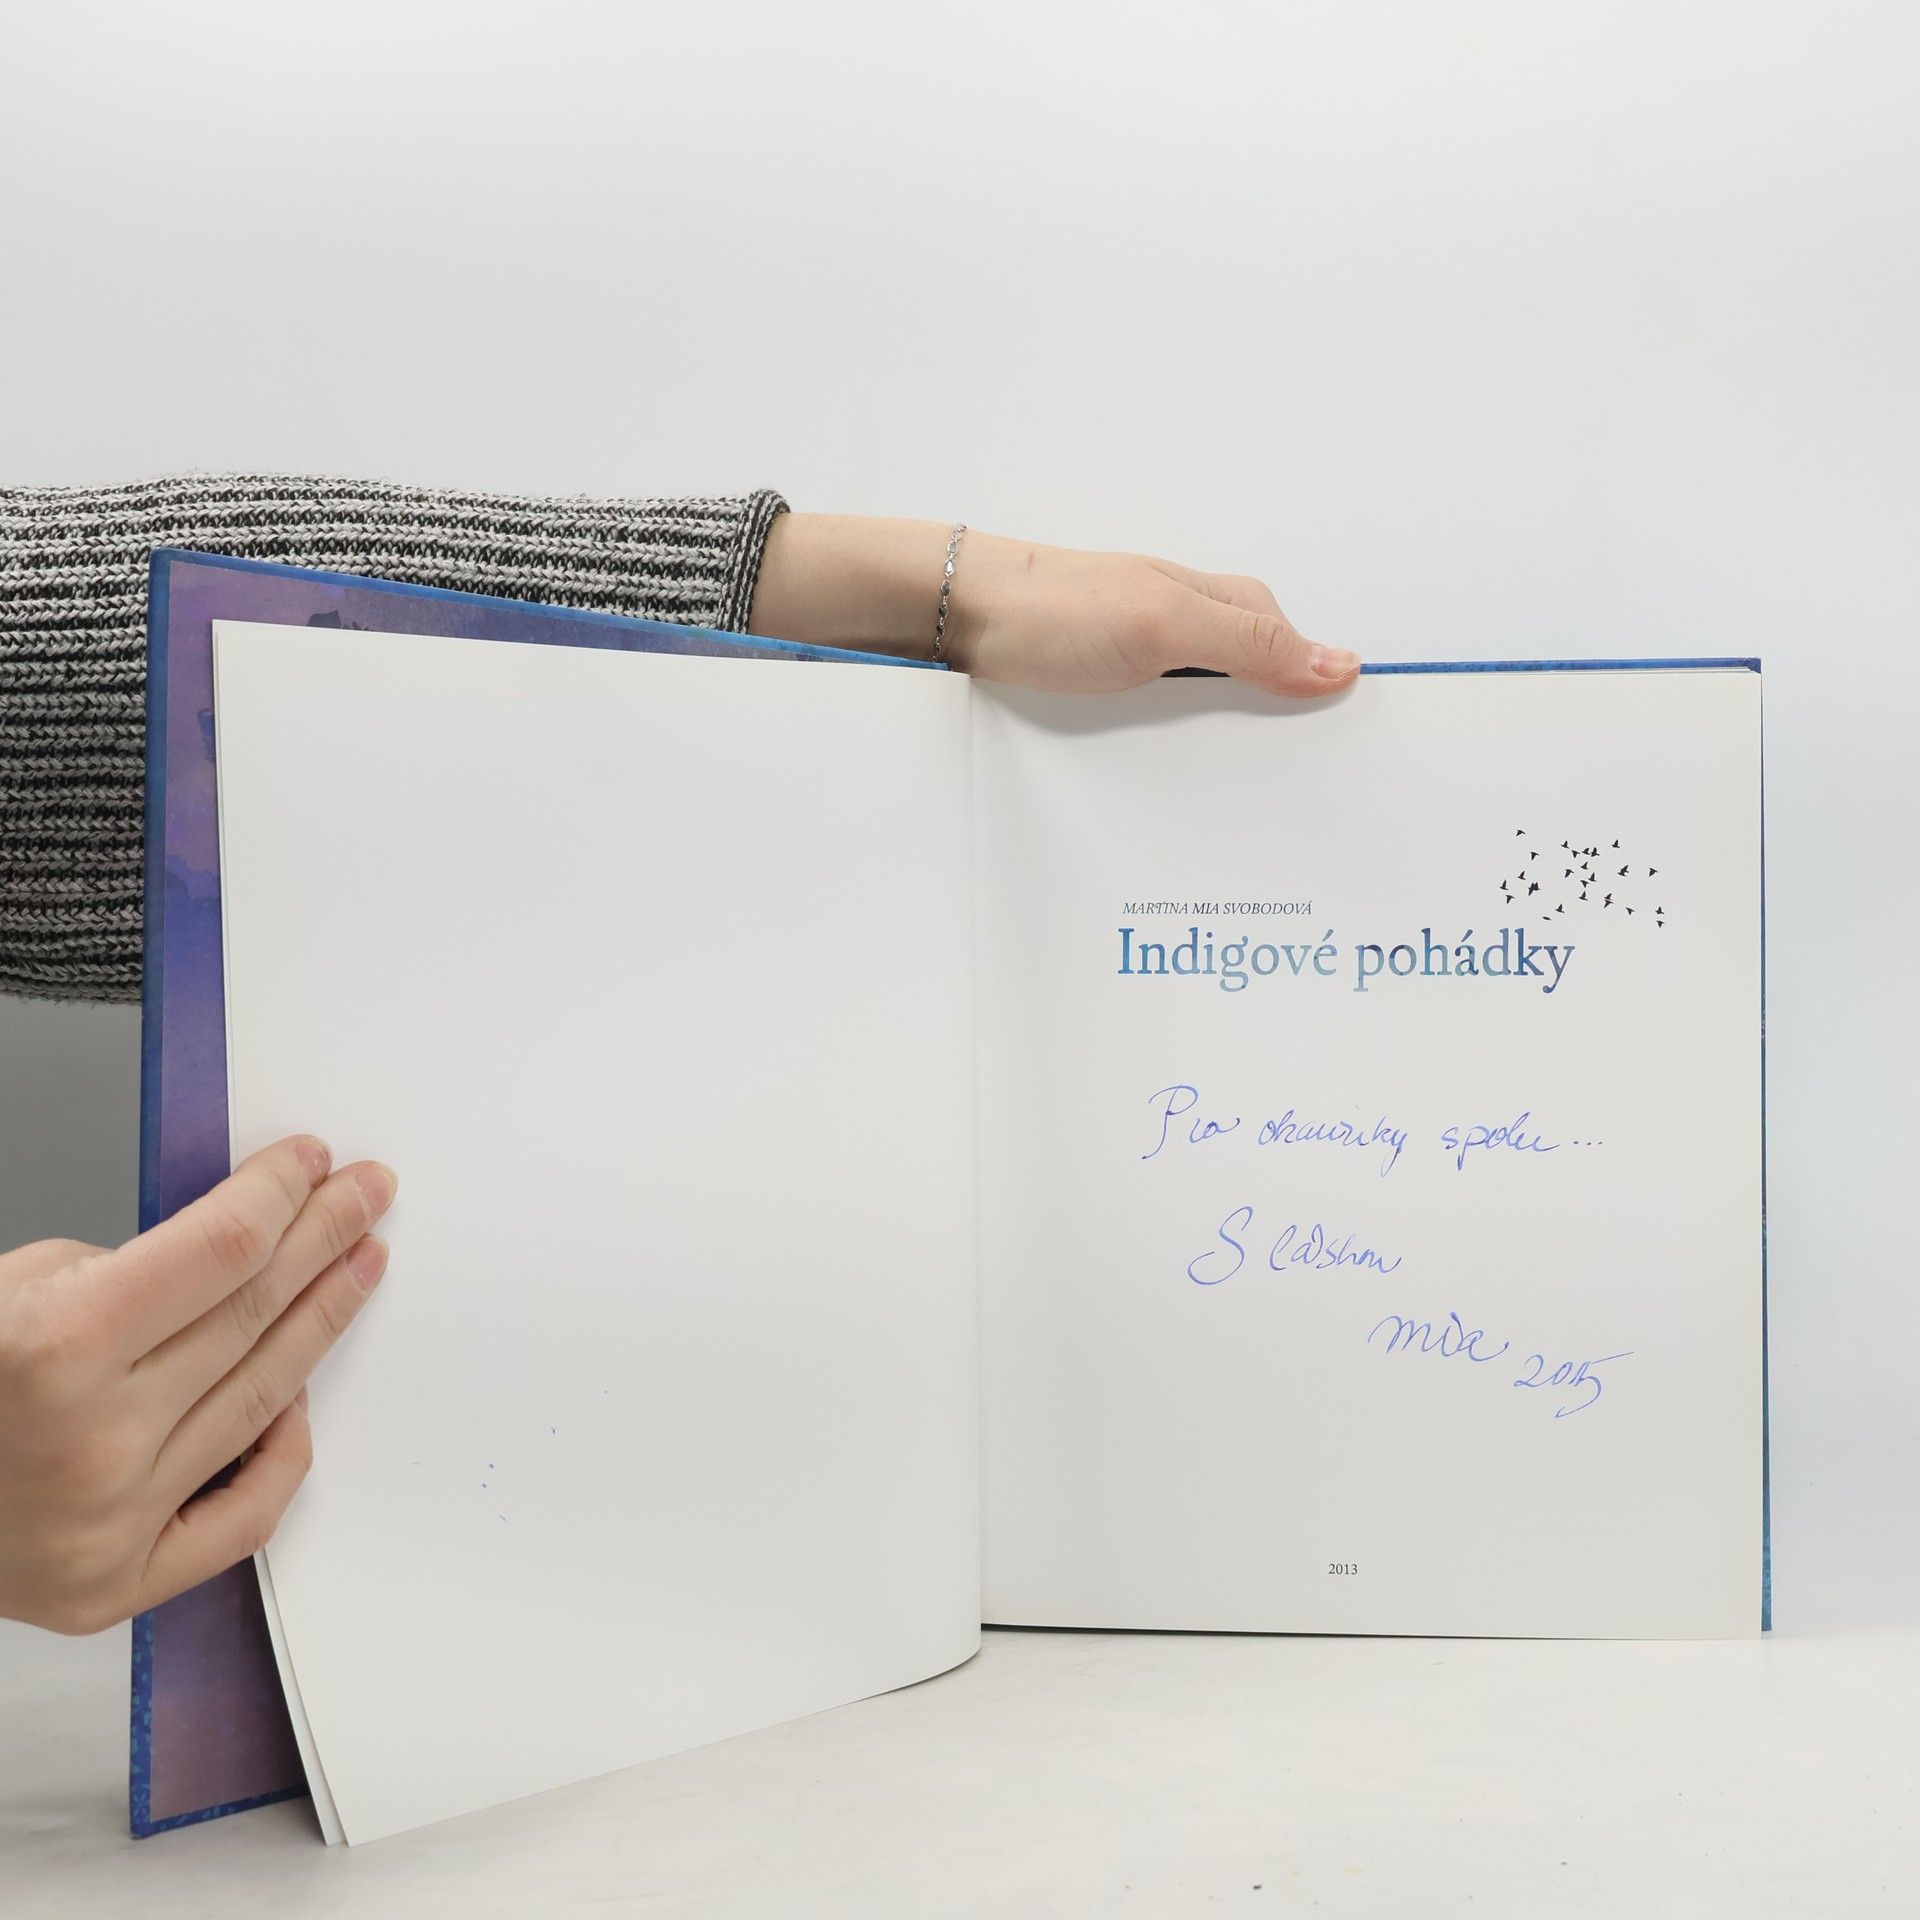 MARTINA MIA SVOBODOVÁ
Indigové pohádky
Pro okamžiky spolu...
S láskou
Mia 2015
2013